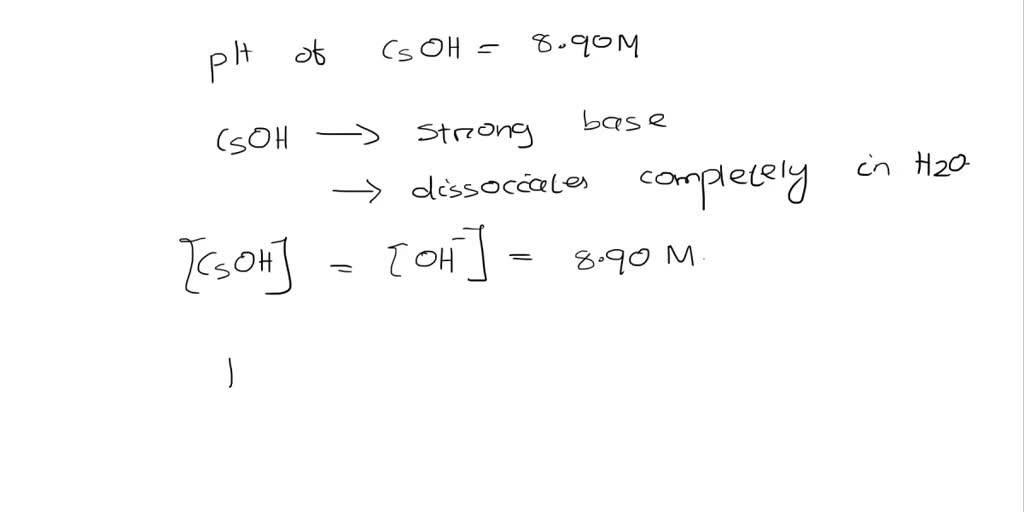 pH of CsOH = 8.90M
CsOH → strong base
→ dissociates completely in H2O
[CsOH] = [OH⁻] = 8.90 M.